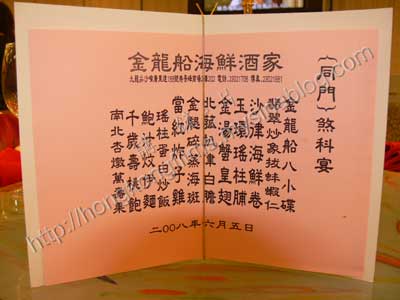 金龍船海鮮酒家
﹛同門﹜煞科宴
金龍船八小碟
翡翠炒象拔蚌蝦仁
沙津海鮮卷
玉環瑤柱脯
金湯蟹皇翅
北菰
當紅炸子雞
瑤柱蛋白炒飯
鮑汁炆伊麵
千歲壽桃飽
南北杏燉萬壽果
二00八年六月五日